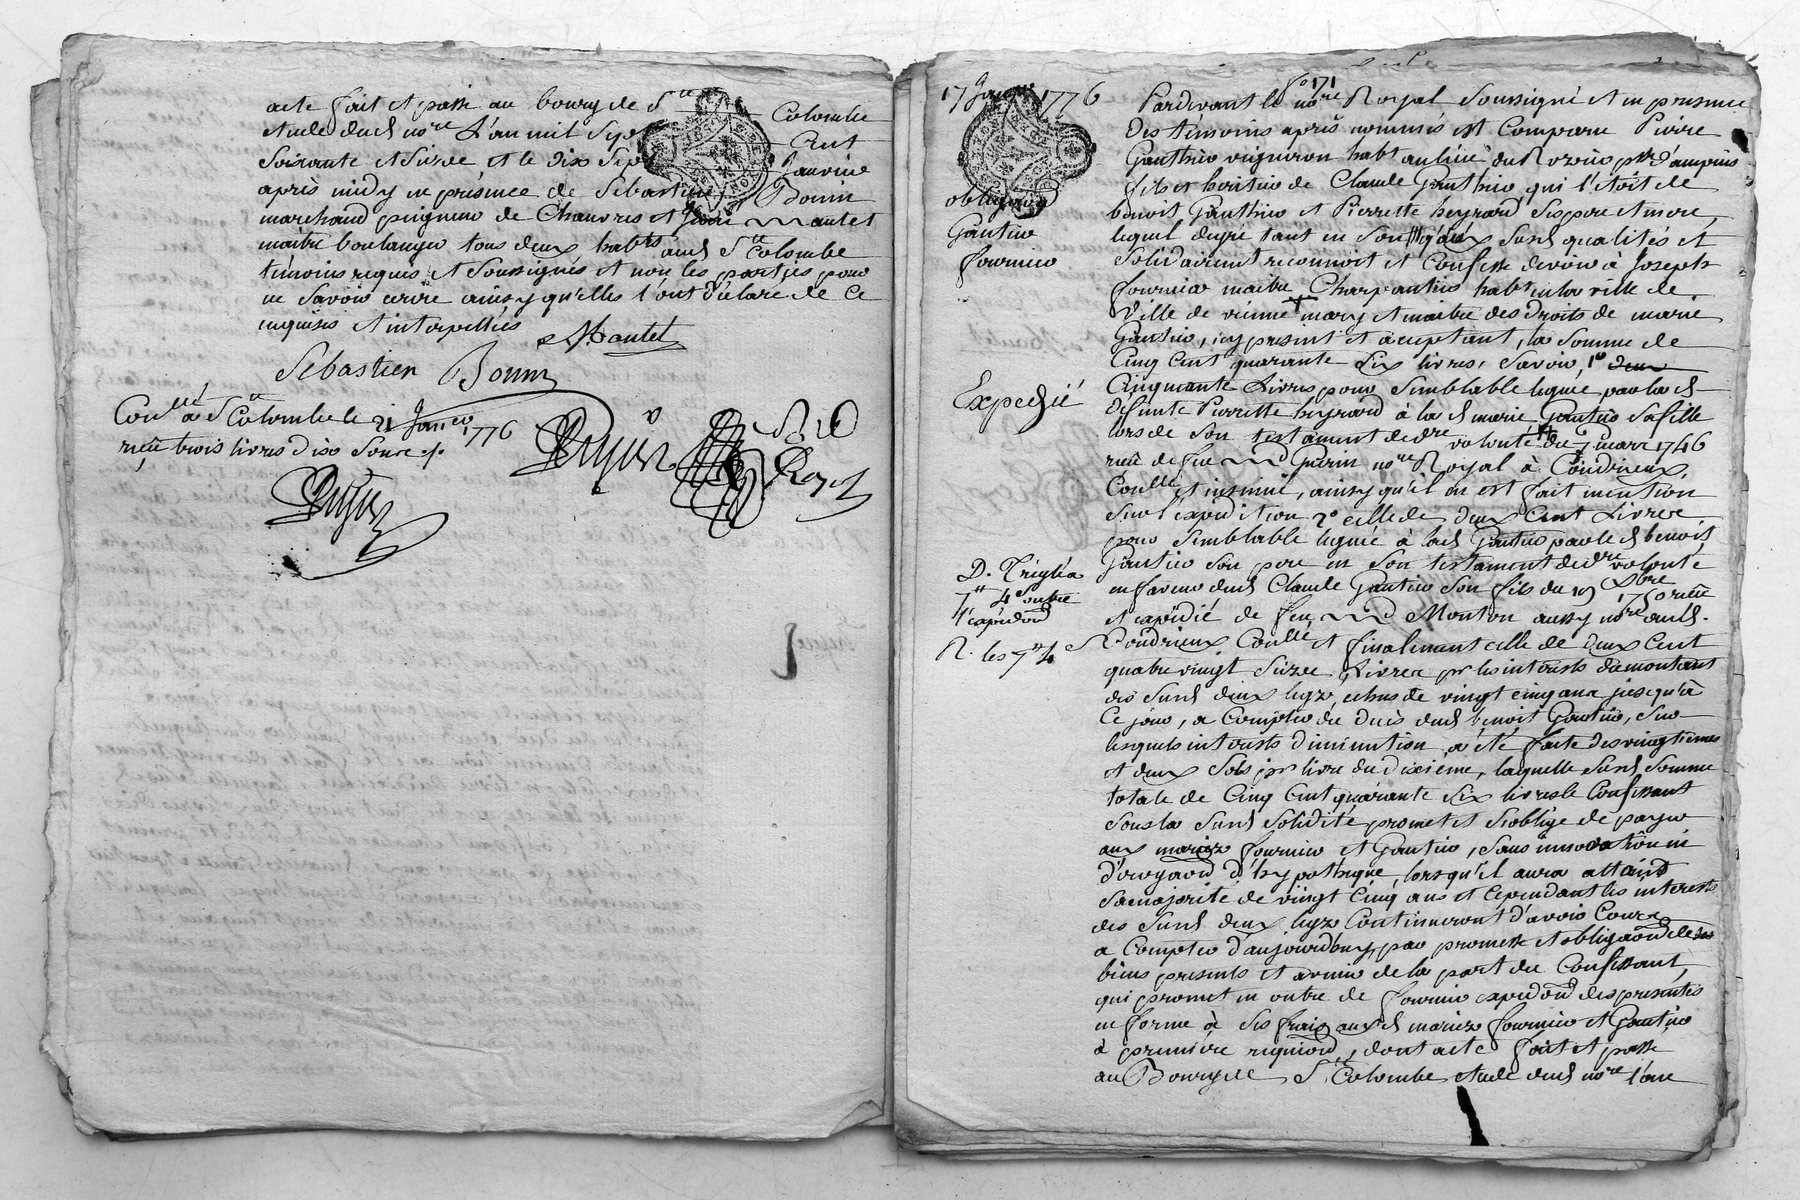 acte fait et passé au bourg de Ste Colombe
etude dud. nore L'an mil Sept Cent
Soixante et Seize et le dix Sept Janvier
après midy en présence de Sébastien Bonin
marchand peigneur de Chanvres et Mautet
maitre boulanger tous deux habts aud. Ste Colombe
témoins requis et Soussignés et non les parties pour
ne Savoir ecrire ainsy qu'elles l'ont déclaré de ce
enquises et interpellées
Mautet
Sébastien Bonin
Conllé à Ste Colombe le 21 Janvier 1776
reçu trois livres dix Sous
17 Janvier 1776
fo 171
obligaõn
Gautier
fournier
Expedié
R. les 7tt 4s
Pardevant le nore Royal Soussigné et en présence
des témoins après nommés est Comparu Pierre
Gauthier vigneron habt au lieu du Rozeir psse d'ampuis
fils et heritier de Claude Gauthier, qui l'étoit de
benoit Gauthier et Pierrette heyraud Ses pere et mere,
lequel degré tant en Son qu'aux Susd. qualités et
Solidairemt reconnoit et Confesse devoir à Joseph
fournier maitre Charpentier habt en la ville de
Ville de vienne mary et maitre des droits de marie
Gautier, icy présent et acceptant, la Somme de
Cinq Cent quarante Six livres, Savoir, 1o
Cinquante Livres pour Semblable leguée par lad.
défunte Pierrette heyraud à lad. marie Gautier Sa fille
lors de Son testament de dre volonté du 7 mars 1746
reçu de feu Me Guerin nore Royal à Condrieux,
Conllé et insinué, ainsy qu'il en est fait mention
Sur l'expedition 2o celle de deux Cent Livres
pour Semblable leguée à lad. Gautier par led. benoit
Gautier Son pere en Son testament de dre volonté
en faveur dud. Claude Gautier Son fils du 19 Xbre 1750 reçu
et expédié de feu Me Mouton aussy nore aud.
Condrieux Conllé et finalement celle de deux Cent
quatre vingt Seize Livres pr les interests du montant
des Susd. deux legz, echus de vingt cinq ans jusqu'à
Ce jour, a Compter du decès dud. benoit Gautier, Sur
lesquels interests diminution a été faite des vingtiemes
et deux Sols pr livre du dixième, laquelle Susd. Somme
totale de Cinq Cent quarante Six livres le Confessant
Sous la Susd. Solidité promet et S'oblige de payer
aux mariez fournier et Gautier, Sans innovation ni
d'hypotheque, lorsqu'il aura attaint
Sa majorité de vingt Cinq ans et Cependant les interests
des Susd. deux legz Continueront d'avoir Cours
a Compter d'aujourd'huy, par promesse et obligaõn de Ses
biens presents et avenir de la part du Confessant,
qui promet en outre de fournir expedõn des presentes
en forme à Ses frais auxd. mariez fournier et Gautier
à premiere requisiõn, dont acte fait et passé
au Bourg de Ste Colombe etude dud. nore l'an